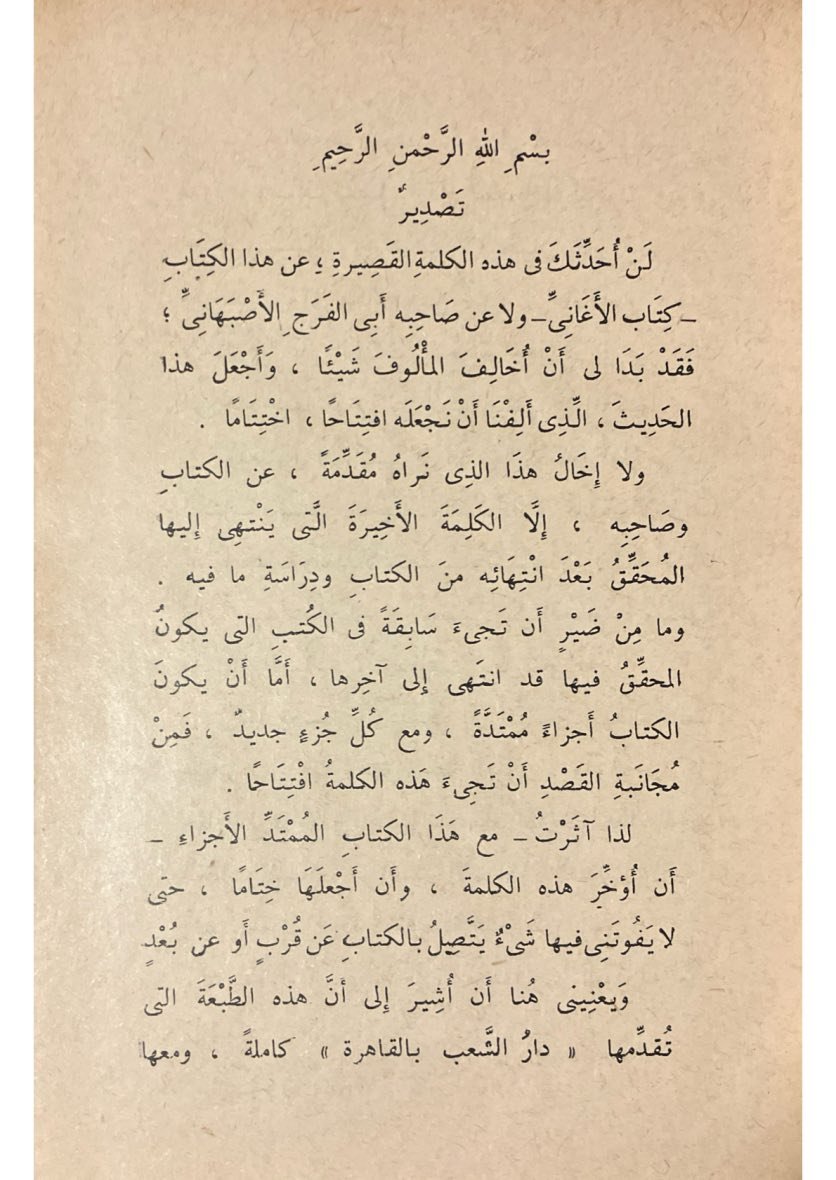 بِسْمِ اللهِ الرَّحْمنِ الرَّحِيمِ
تَصْدِيرٌ
لَنْ أُحَدِّثَكَ فى هذه الكلمةِ القَصِيرةِ ؛ عن هذا الكِتَابِ
ـ كِتَاب الأَغَانِىِّ ـ ولا عن صَاحِبِه أَبِى الفَرَج ِ الأَصْبَهَانِىِّ ؛
فَقَدْ بَدَا لى أَنْ أُخَالِفَ المأْلُوفَ شَيْئًا ، وَأَجْعَلَ هذا
الحَدِيثَ ، الَّذِى أَلِفْنَا أَنْ نَجْعَلَه افتِتَاحًا ، اخْتِتَامًا .
ولا إِخَالُ هذَا الذِى نَراهُ مُقَدِّمَةً ، عن الكتابِ
وصَاحِبِه ، إِلَّا الكَلِمَةَ الأَخِيرَةَ الَّتى يَنْتهِى إِليها
المُحَقِّقُ بَعْدَ انْتِهَائِه منَ الكتابِ ودِرَاسَةِ ما فيه .
وما مِنْ ضَيْرٍ أَن تَجىءَ سَابِقَةً فى الكُتبِ التى يكونُ
المحقِّقُ فيها قد انتَهى إِلى آخِرِها ، أَمَّا أَنْ يكونَ
الكتابُ أَجزاءً مُمْتَدَّةً ، ومع كُلِّ جُزءٍ جديدٌ ، فَمِنْ
مُجَانَبةِ القَصْدِ أَنْ تَجِىءَ هَذه الكلمةُ افْتِتَاحًا .
لذا آثَرْتُ ـ مع هَذَا الكتابِ المُمْتَدِّ الأَجزاءِ ـ
أَن أُؤخِّرَ هذه الكلمةَ ، وأَن أَجْعلَهَا خِتَامًا ، حتى
لا يَفُوتَنِى فيها شَىْءٌ يَتَّصِلُ بالكتابِ عَن قُرْبٍ أَو عن بُعْدٍ
وَيَعْنِينِى هُنا أَن أُشِيرَ إِلى أَنَّ هذه الطَّبْعَةَ التى
تُقدِّمها « دارُ الشَّعب بالقاهرة » كاملةً ، ومعها